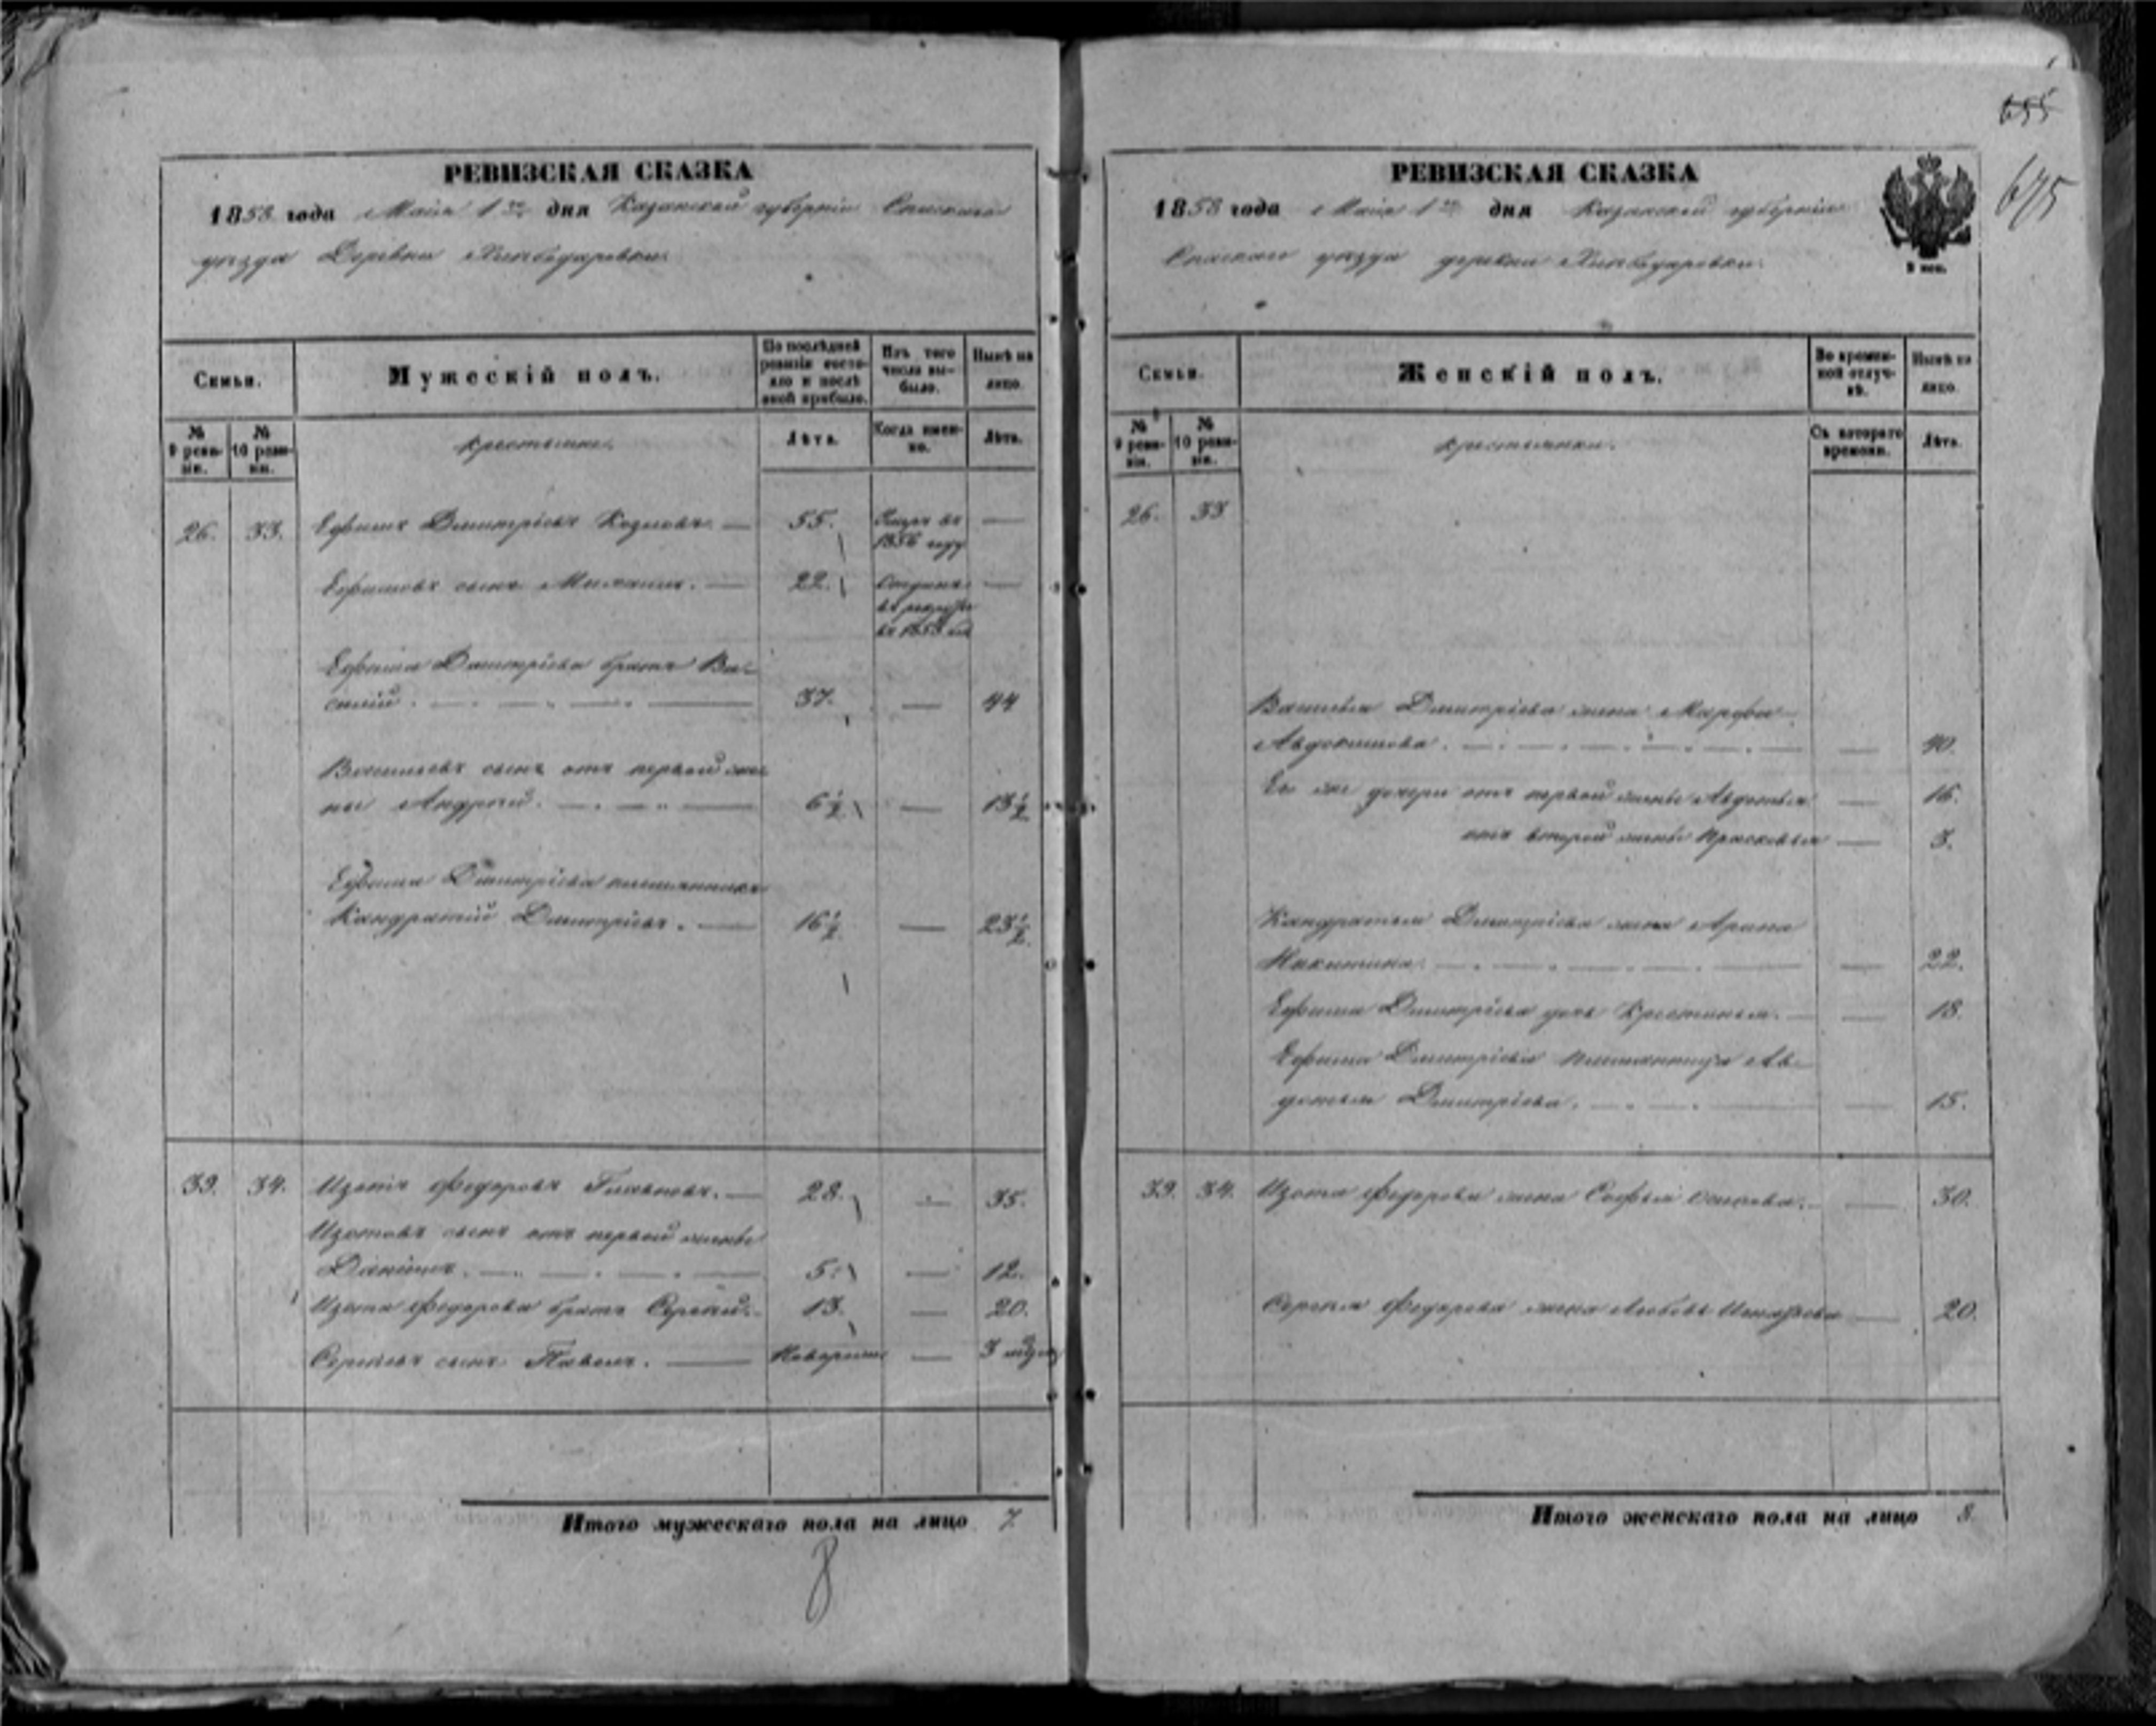 655
675
РЕВИЗСКАЯ СКАЗКА
1858 года Мая 1го дня Казанской губернiи Спаскаго
уезда Деревни
Семьи.
Мужескiй полъ.
По последней ревизiи состояло и после оной прибыло.
Изъ того числа выбыло.
Ныне на лицо.
№ 9 ревизiи.
№ 10 ревизiи.
крестьяне.
Лѣта.
Когда именно.
Лѣта.
26. 33. Ефимъ Дмитрiевъ Козловъ. — 55. Умеръ въ 1856 году —
Ефимовъ сынъ — 22. Отданъ въ рекруты въ —
Ефима Дмитрiева братъ Ва-
силiй. — 37. — 44
Васильевъ сынъ отъ первой же-
ны Андрей. — 6½ — 13½
Ефима Дмитрiева племянникъ
Кандратiй Дмитрiевъ. — 16½ — 23½
39. 34. Изотъ Федоровъ — 28. — 35.
Изотовъ сынъ отъ первой жены
Данiилъ. — 5. — 12.
Изота Федорова братъ Сергей. 13. — 20.
Сергеевъ сынъ Павелъ. — Новорож — 3
Итого мужескаго пола на лицо 7
8
РЕВИЗСКАЯ СКАЗКА
1858 года Мая 1го дня Казанской губернiи
Спаскаго уезда деревни
Семьи.
Женскiй полъ.
Во временной отлучкѣ.
Ныне на лицо.
№ 9 ревизiи.
№ 10 ревизiи.
крестьянки.
Съ котораго времени.
Лѣта.
26. 33
Василья Дмитрiева жена Марфа
Авдокимова. — 40.
Ево же дочери отъ первой жены Авдотья — 16.
отъ второй жены Прасковья — 3.
Кандратья Дмитрiева жена Арина
Никитина. — 22.
Ефима Дмитрiева дочь Крестинья. — 18.
Ефима Дмитрiева племянница Ав-
дотья Дмитрiева. — 15.
39. 34. Изота Федорова жена Софья Осипова. — 30.
Сергея Федорова жена Любовь — 20.
Итого женскаго пола на лицо 8